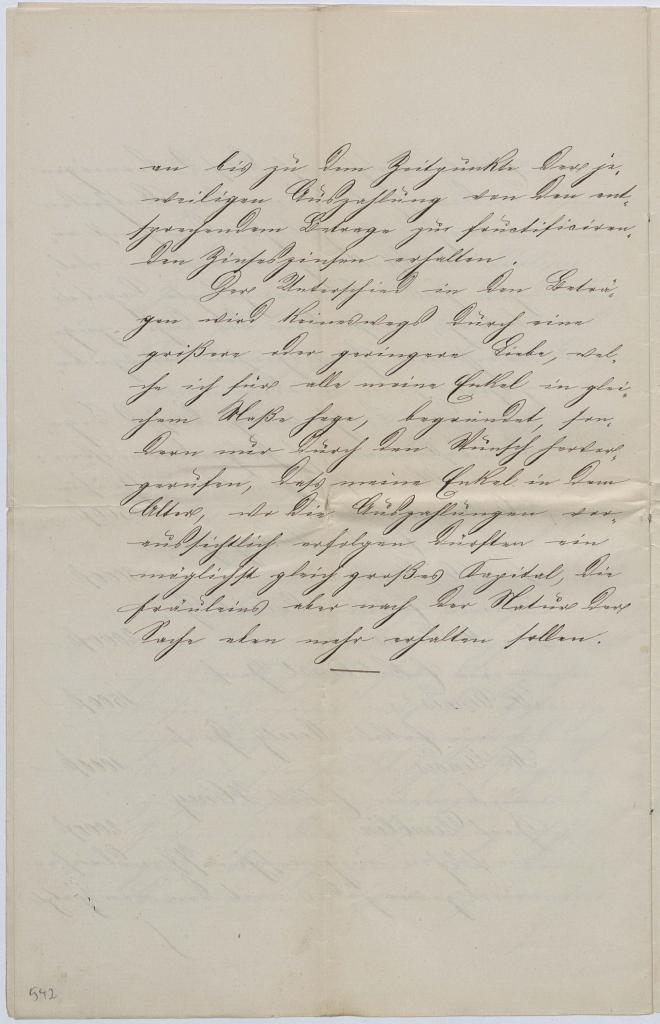 an bis zu dem Zeitpunkte der je-
weiligen Auszahlung von den ent-
sprechendem Betrage zur fructificiren-
den Zinseszinsen erhalten.
Der Unterschied in den Beträ-
gen wird keineswegs durch eine
größere oder geringere Liebe, wel-
che ich für alle meine Enkel in glei-
chem Maße hege, begründet, son-
dern nur durch den Wunsch hervor-
gerufen, dass meine Enkel in dem
Alter, wo die Auszahlungen vor-
aussichtlich erfolgen dürften ein
möglichst gleich großes Capital, die
Fräuleins aber nach der Natur der
Sache eben mehr erhalten sollen.
542